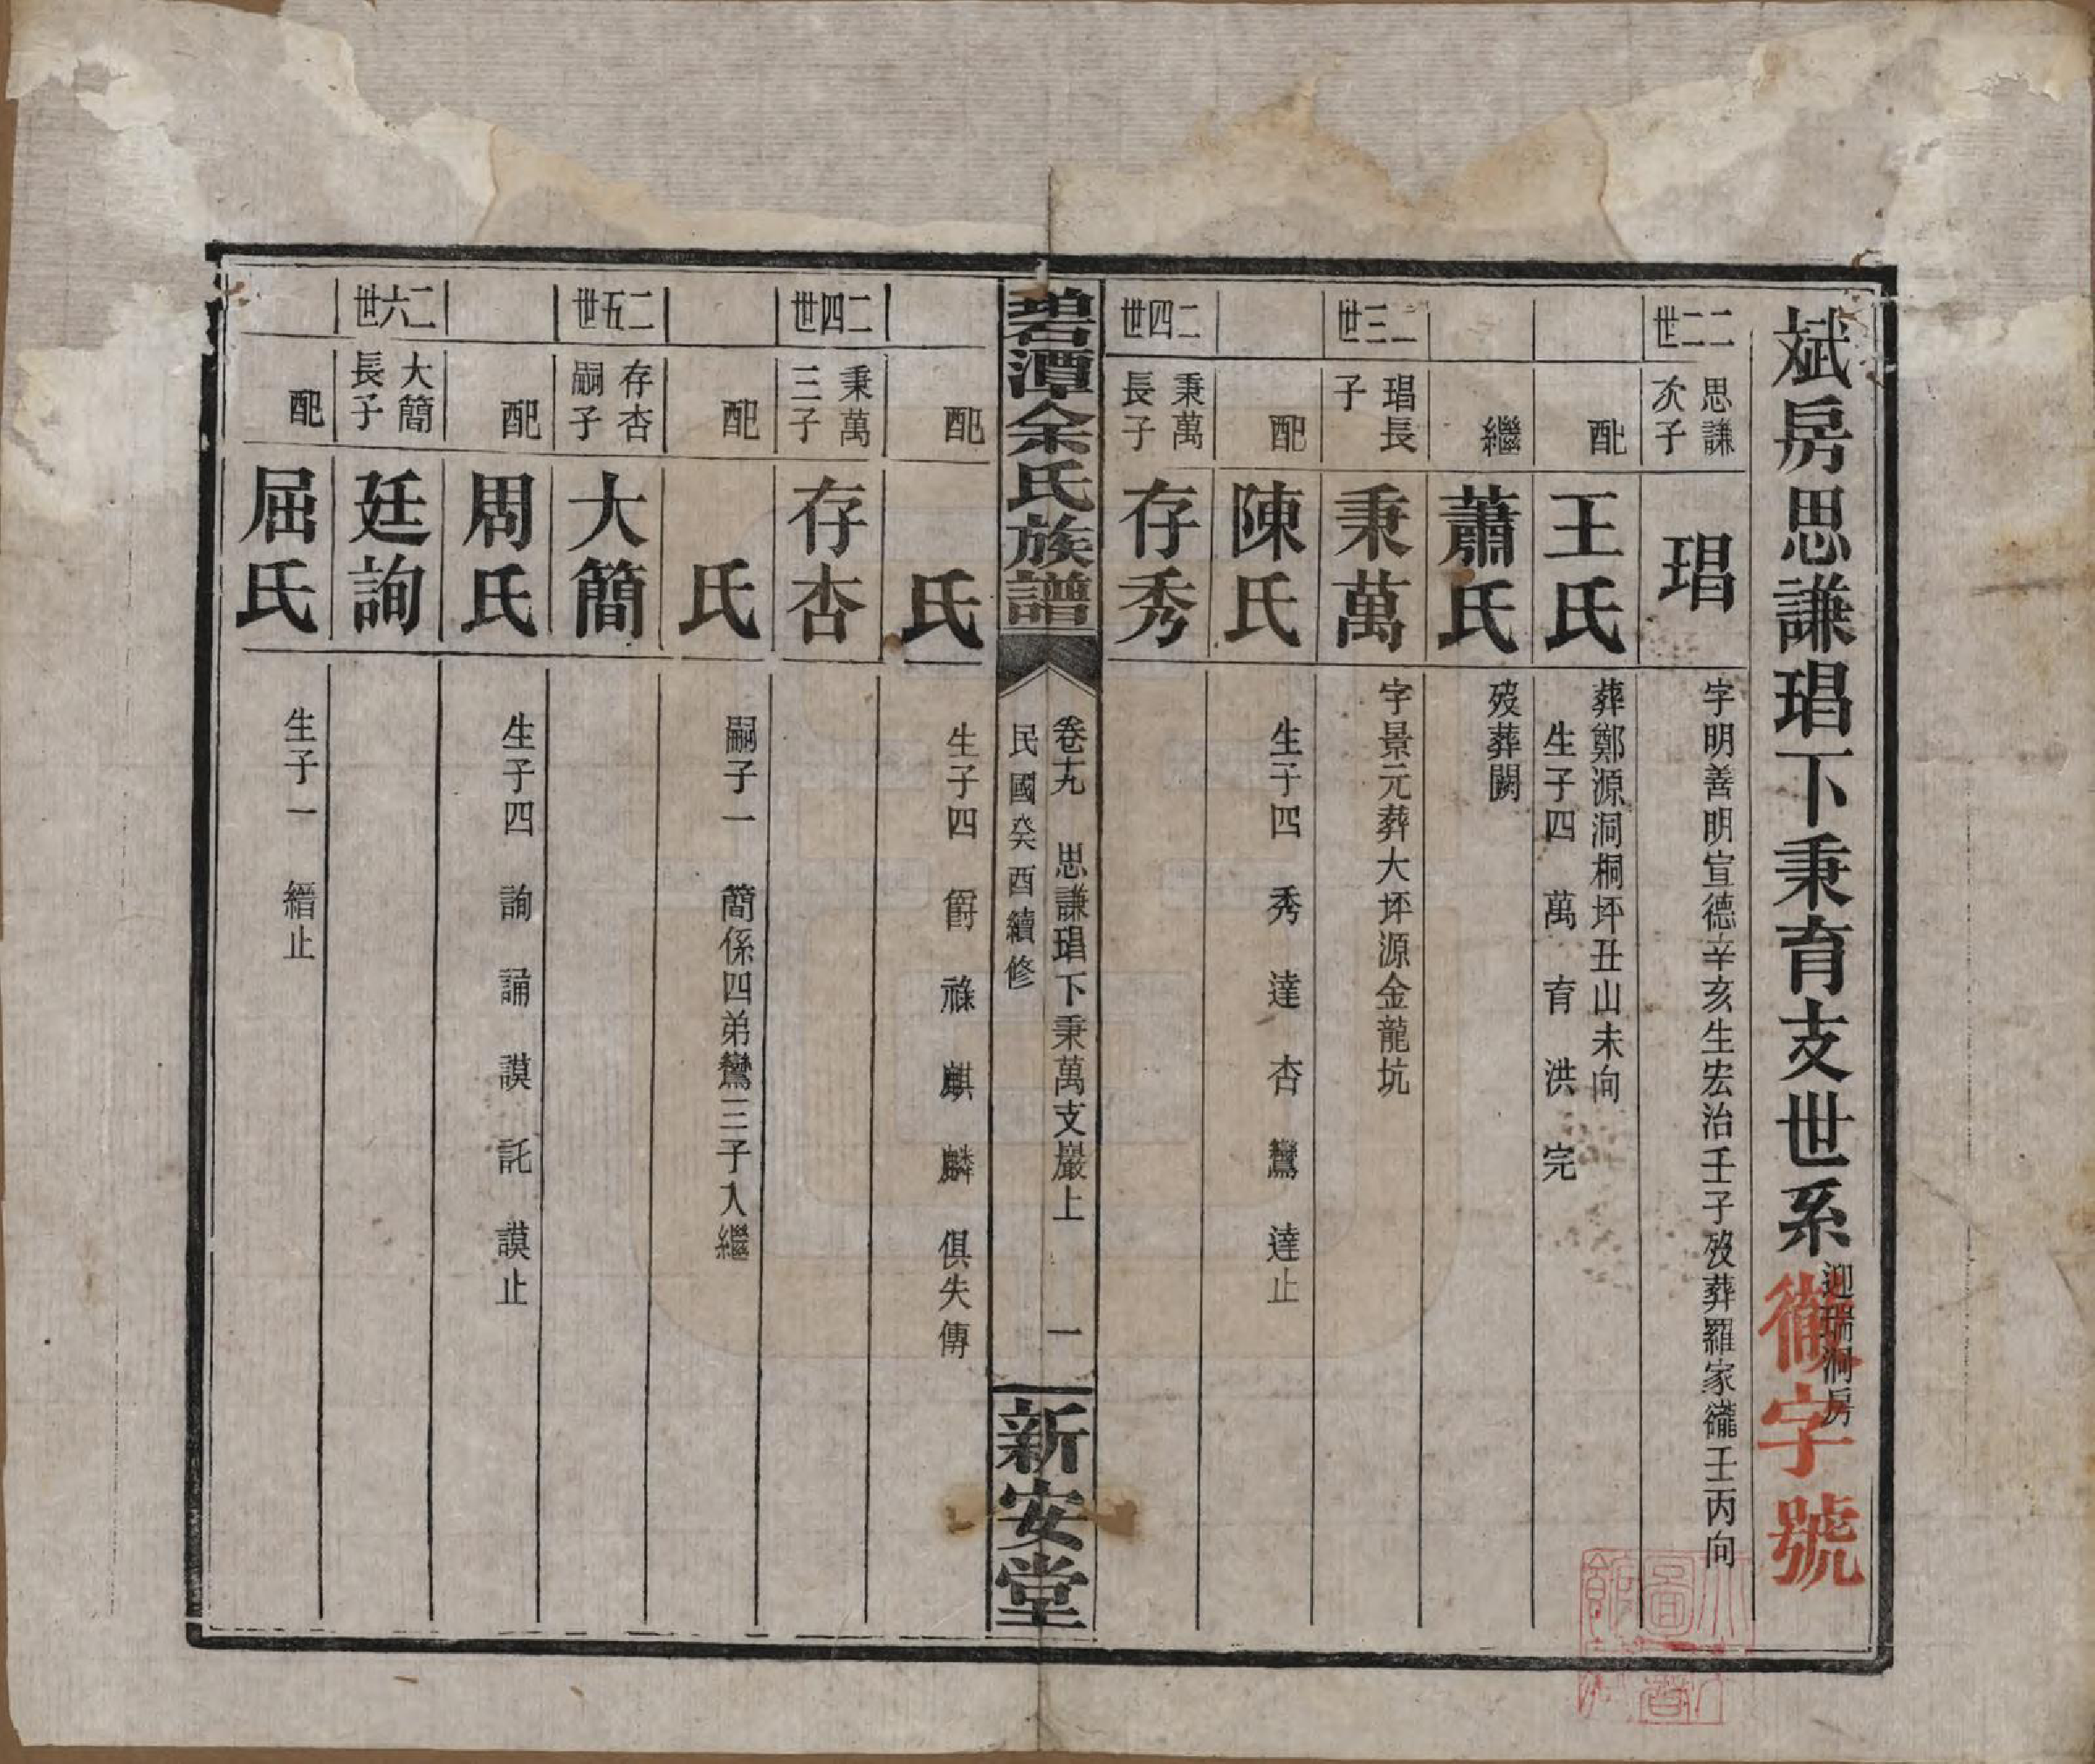 斌房思謙琩下秉育支世系 迎瑞洞房
徽字號
二二世 思謙次子 琩 字明善明宣德辛亥生宏治壬子歿葬羅家巃壬丙向
配 王氏 葬鄭源洞桐坪丑山未向
生子四 萬 育 洪 完
繼 蕭氏 歿葬闕
二三世 琩長子 秉萬 字景元葬大坪源金龍坑
配 陳氏 生子四 秀 達 杏 鸞 達止
二四世 秉萬長子 存秀
碧潭余氏族譜 卷十九 思謙琩下秉萬支嚴上 一 新安堂
民國癸酉續修
配 氏 生子四 爵 祿 麒 麟 俱失傳
二四世 秉萬三子 存杏
配 氏 嗣子一 簡係四弟鸞三子入繼
二五世 存杏嗣子 大簡
配 周氏 生子四 詢 誦 謨 託 謨止
二六世 大簡長子 廷詢
配 屈氏 生子一 縉止